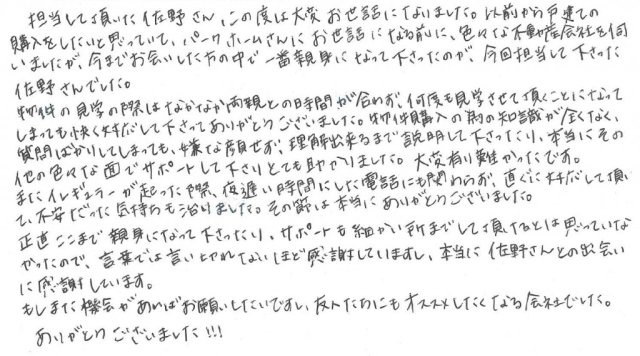 担当して頂いた佐野さん、この度は大変お世話になりました。以前から戸建ての
購入をしたいと思っていて、パークホームさんにお世話になる前に、色々な不動産会社を伺
いましたが、今までお会いした方の中で一番親身になって下さったのが、今回担当して下さった
佐野さんでした。
物件の見学の際はなかなか両親との時間が合わず、何度も見学させて頂くことになって
しまっても快く対応して下さってありがとうございました。物件購入の為の知識が全くなく、
質問ばかりしてしまっても、嫌な顔せず、理解出来るまで説明して下さったり、本当にその
他の色々な面でサポートして下さりとても助かりました。大変有り難かったです。
またイレギュラーが起った際、夜遅い時間にした電話にも関わらず、直ぐに対応して頂い
て、不安だった気持ちも治りました。その節は本当にありがとうございました。
正直ここまで親身になって下さったり、サポートも細かい所までして頂けるとは思っていな
かったので、言葉では言い切れないほど感謝していますし、本当に佐野さんとの出会い
に感謝しています。
もしまた機会があればお願いしたいですし、友人たちにもオススメしたくなる会社でした。
ありがとうございました!!!